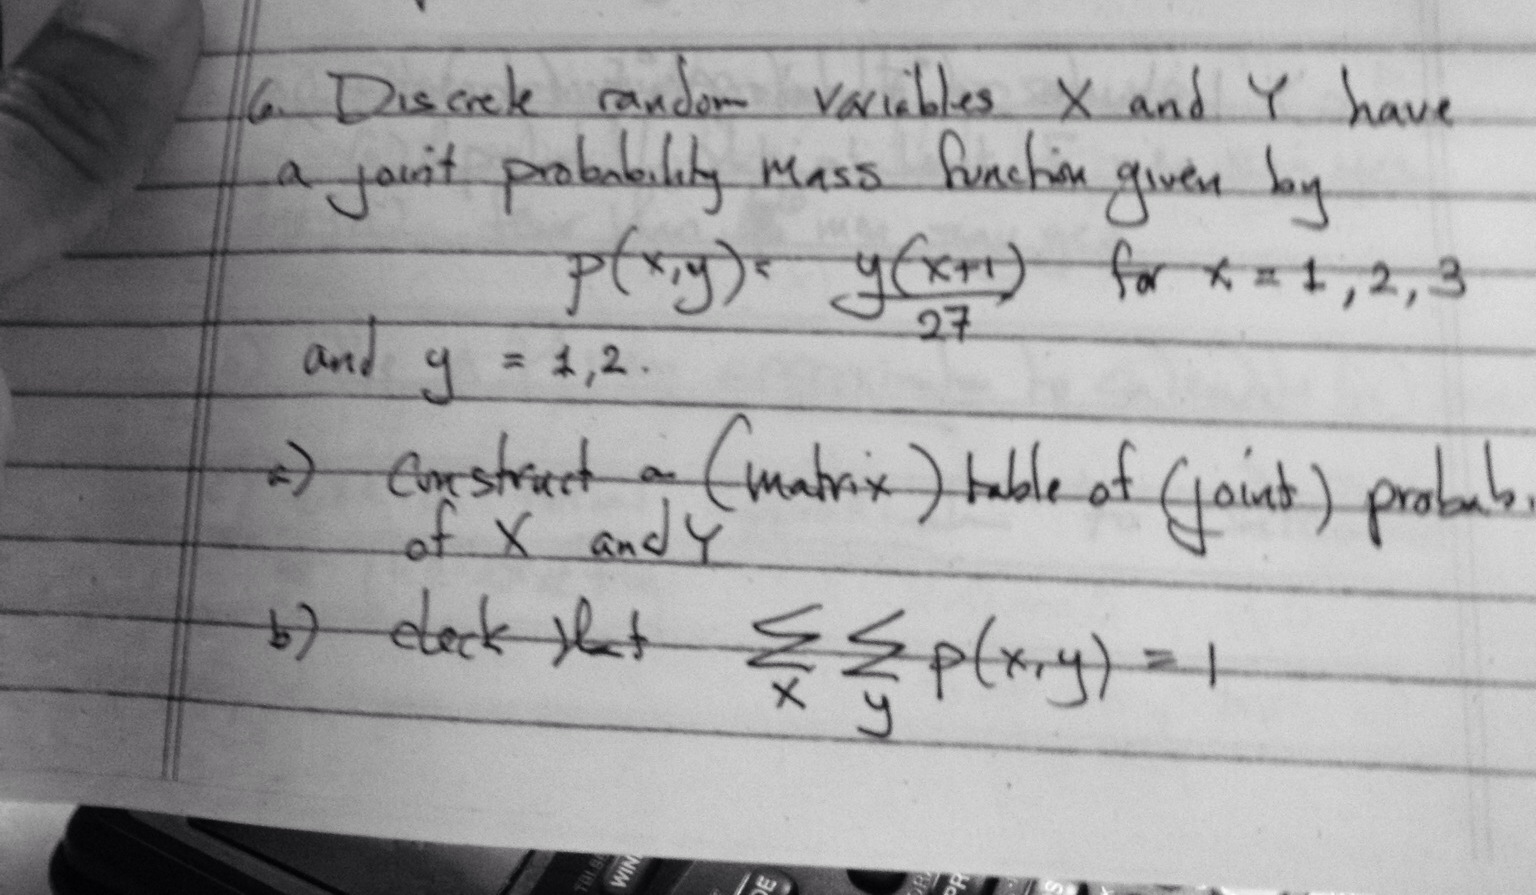 6. Discrete random variables X and Y have
a joint probability mass function given by
p(x,y) = y(x+1)/27 for x = 1, 2, 3
and y = 1, 2.
a) Construct a (matrix) table of (joint) probab.
of X and Y
b) check that ∑x ∑y p(x,y) = 1
WIN